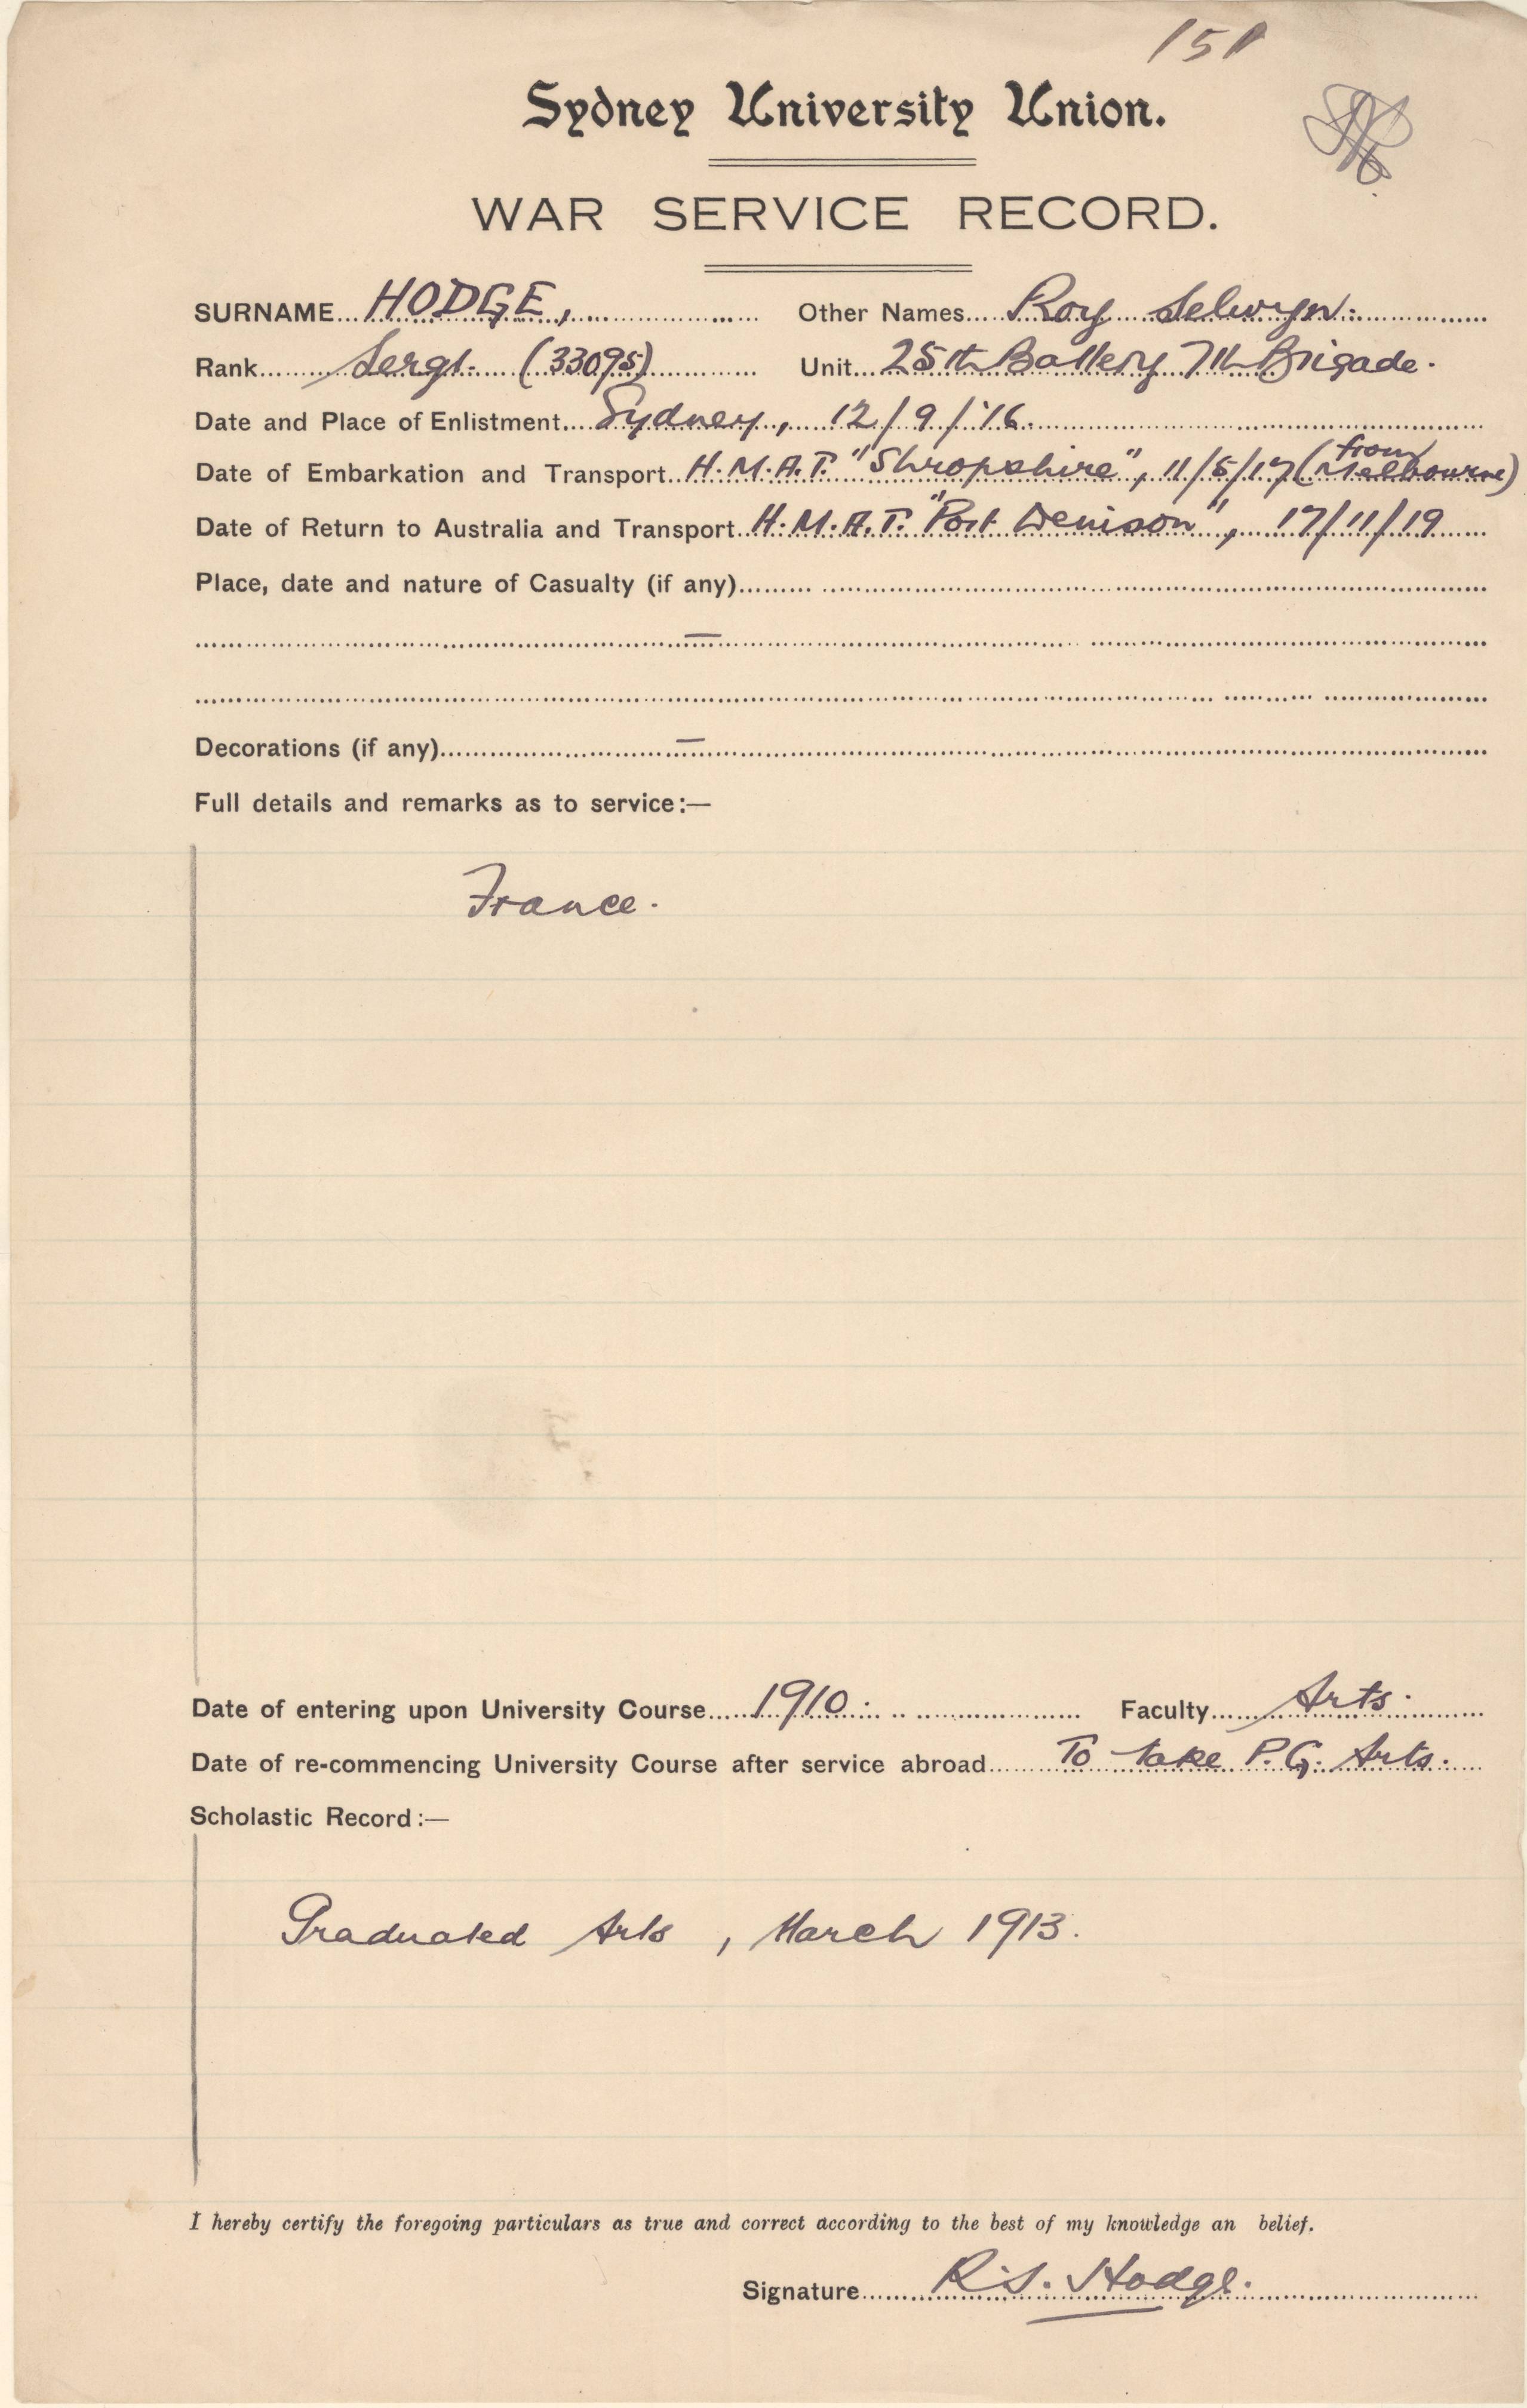 151
Sydney University Union.
WAR SERVICE RECORD.
SURNAME... HODGE, ... Other Names... Roy Selwyn.
Rank... Sergt. (33095) ... Unit... 25th Battery 7th Brigade.
Date and Place of Enlistment... Sydney, 12/9/'16.
from
Date of Embarkation and Transport.. H.M.A.T. "Shropshire", 11/5/17 (Melbourne)
Date of Return to Australia and Transport.. H.M.A.T. "Port Denison", 17/11/19
Place, date and nature of Casualty (if any)...
—
Decorations (if any)... —
Full details and remarks as to service:—
France.
Date of entering upon University Course... 1910. ... Faculty... Arts.
Date of re-commencing University Course after service abroad... To take P.G. Arts.
Scholastic Record:—
Graduated Arts, March 1913.
I hereby certify the foregoing particulars as true and correct according to the best of my knowledge an belief.
Signature... R.S. Hodge.